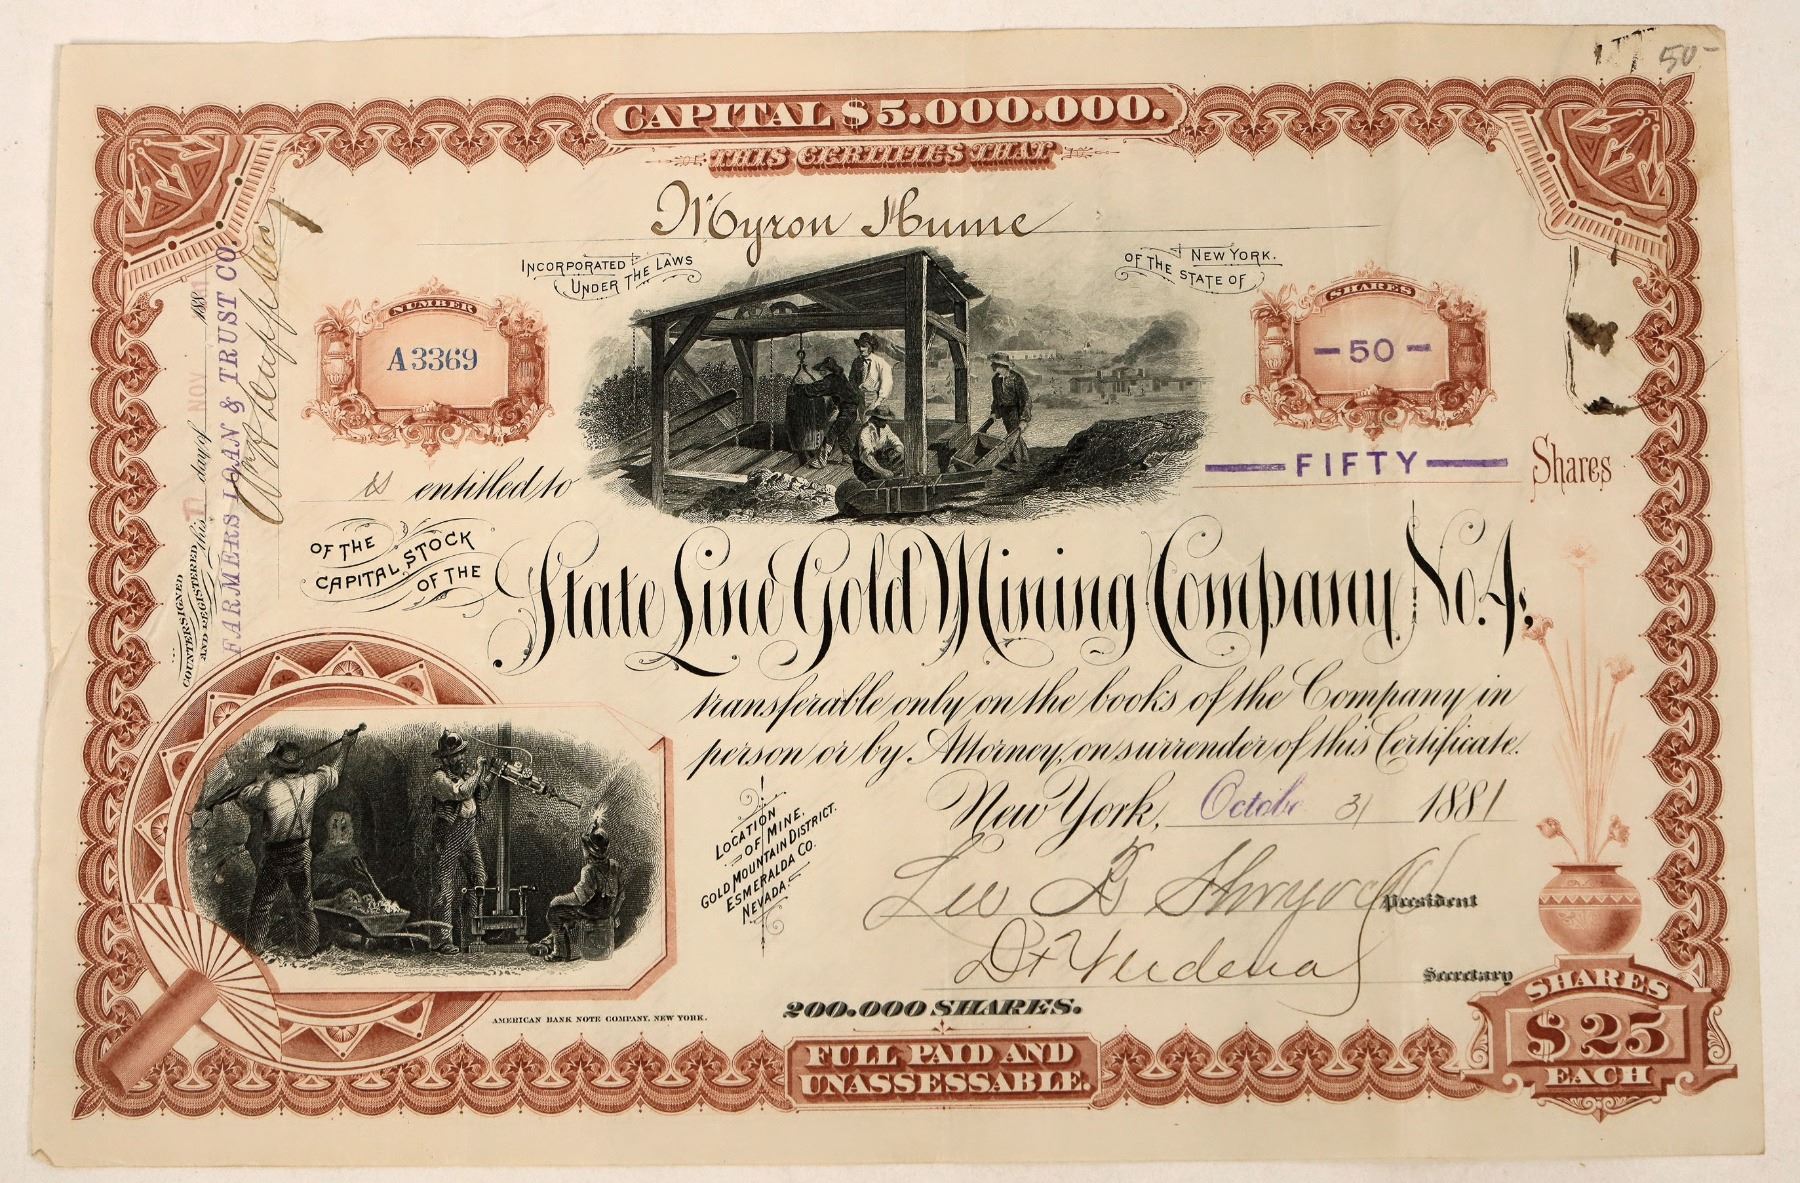 50-
CAPITAL $5.000.000.
THIS CERTIFIES THAT
Myron Hume
INCORPORATED UNDER THE LAWS
OF THE STATE OF NEW YORK.
NUMBER
A3369
SHARES
-50-
is entitled to
FIFTY
Shares
OF THE CAPITAL STOCK OF THE
State Line Gold Mining Company No. 4,
transferable only on the books of the Company in
person or by Attorney, on surrender of this Certificate.
New York, October 31 1881
LOCATION
OF MINE.
GOLD MOUNTAIN DISTRICT.
ESMERALDA CO.
NEVADA.
President
Secretary
200.000 SHARES.
AMERICAN BANK NOTE COMPANY, NEW YORK.
FULL PAID AND
UNASSESSABLE.
SHARES
$25
EACH
COUNTERSIGNED
AND REGISTERED this 17 day of NOV 1881
FARMERS LOAN & TRUST CO.